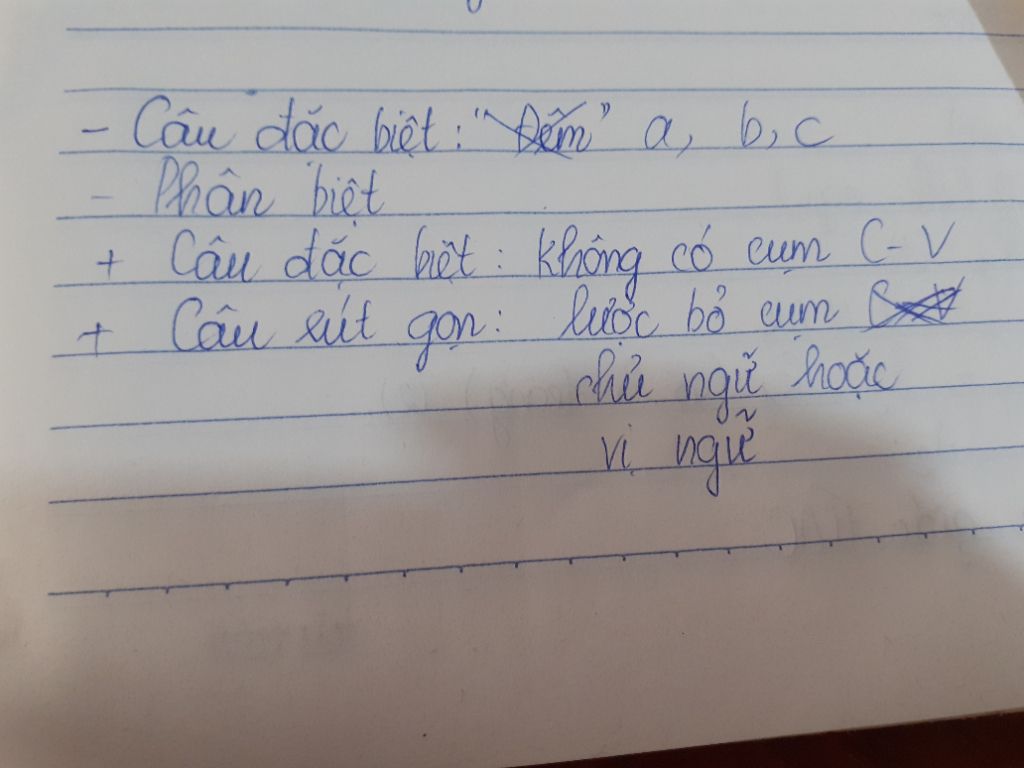 - Câu đặc biệt: " " a, b, c
- Phân biệt
+ Câu đặc biệt: không có cụm C-V
+ Câu rút gọn: lược bỏ cụm
chủ ngữ hoặc
vị ngữ